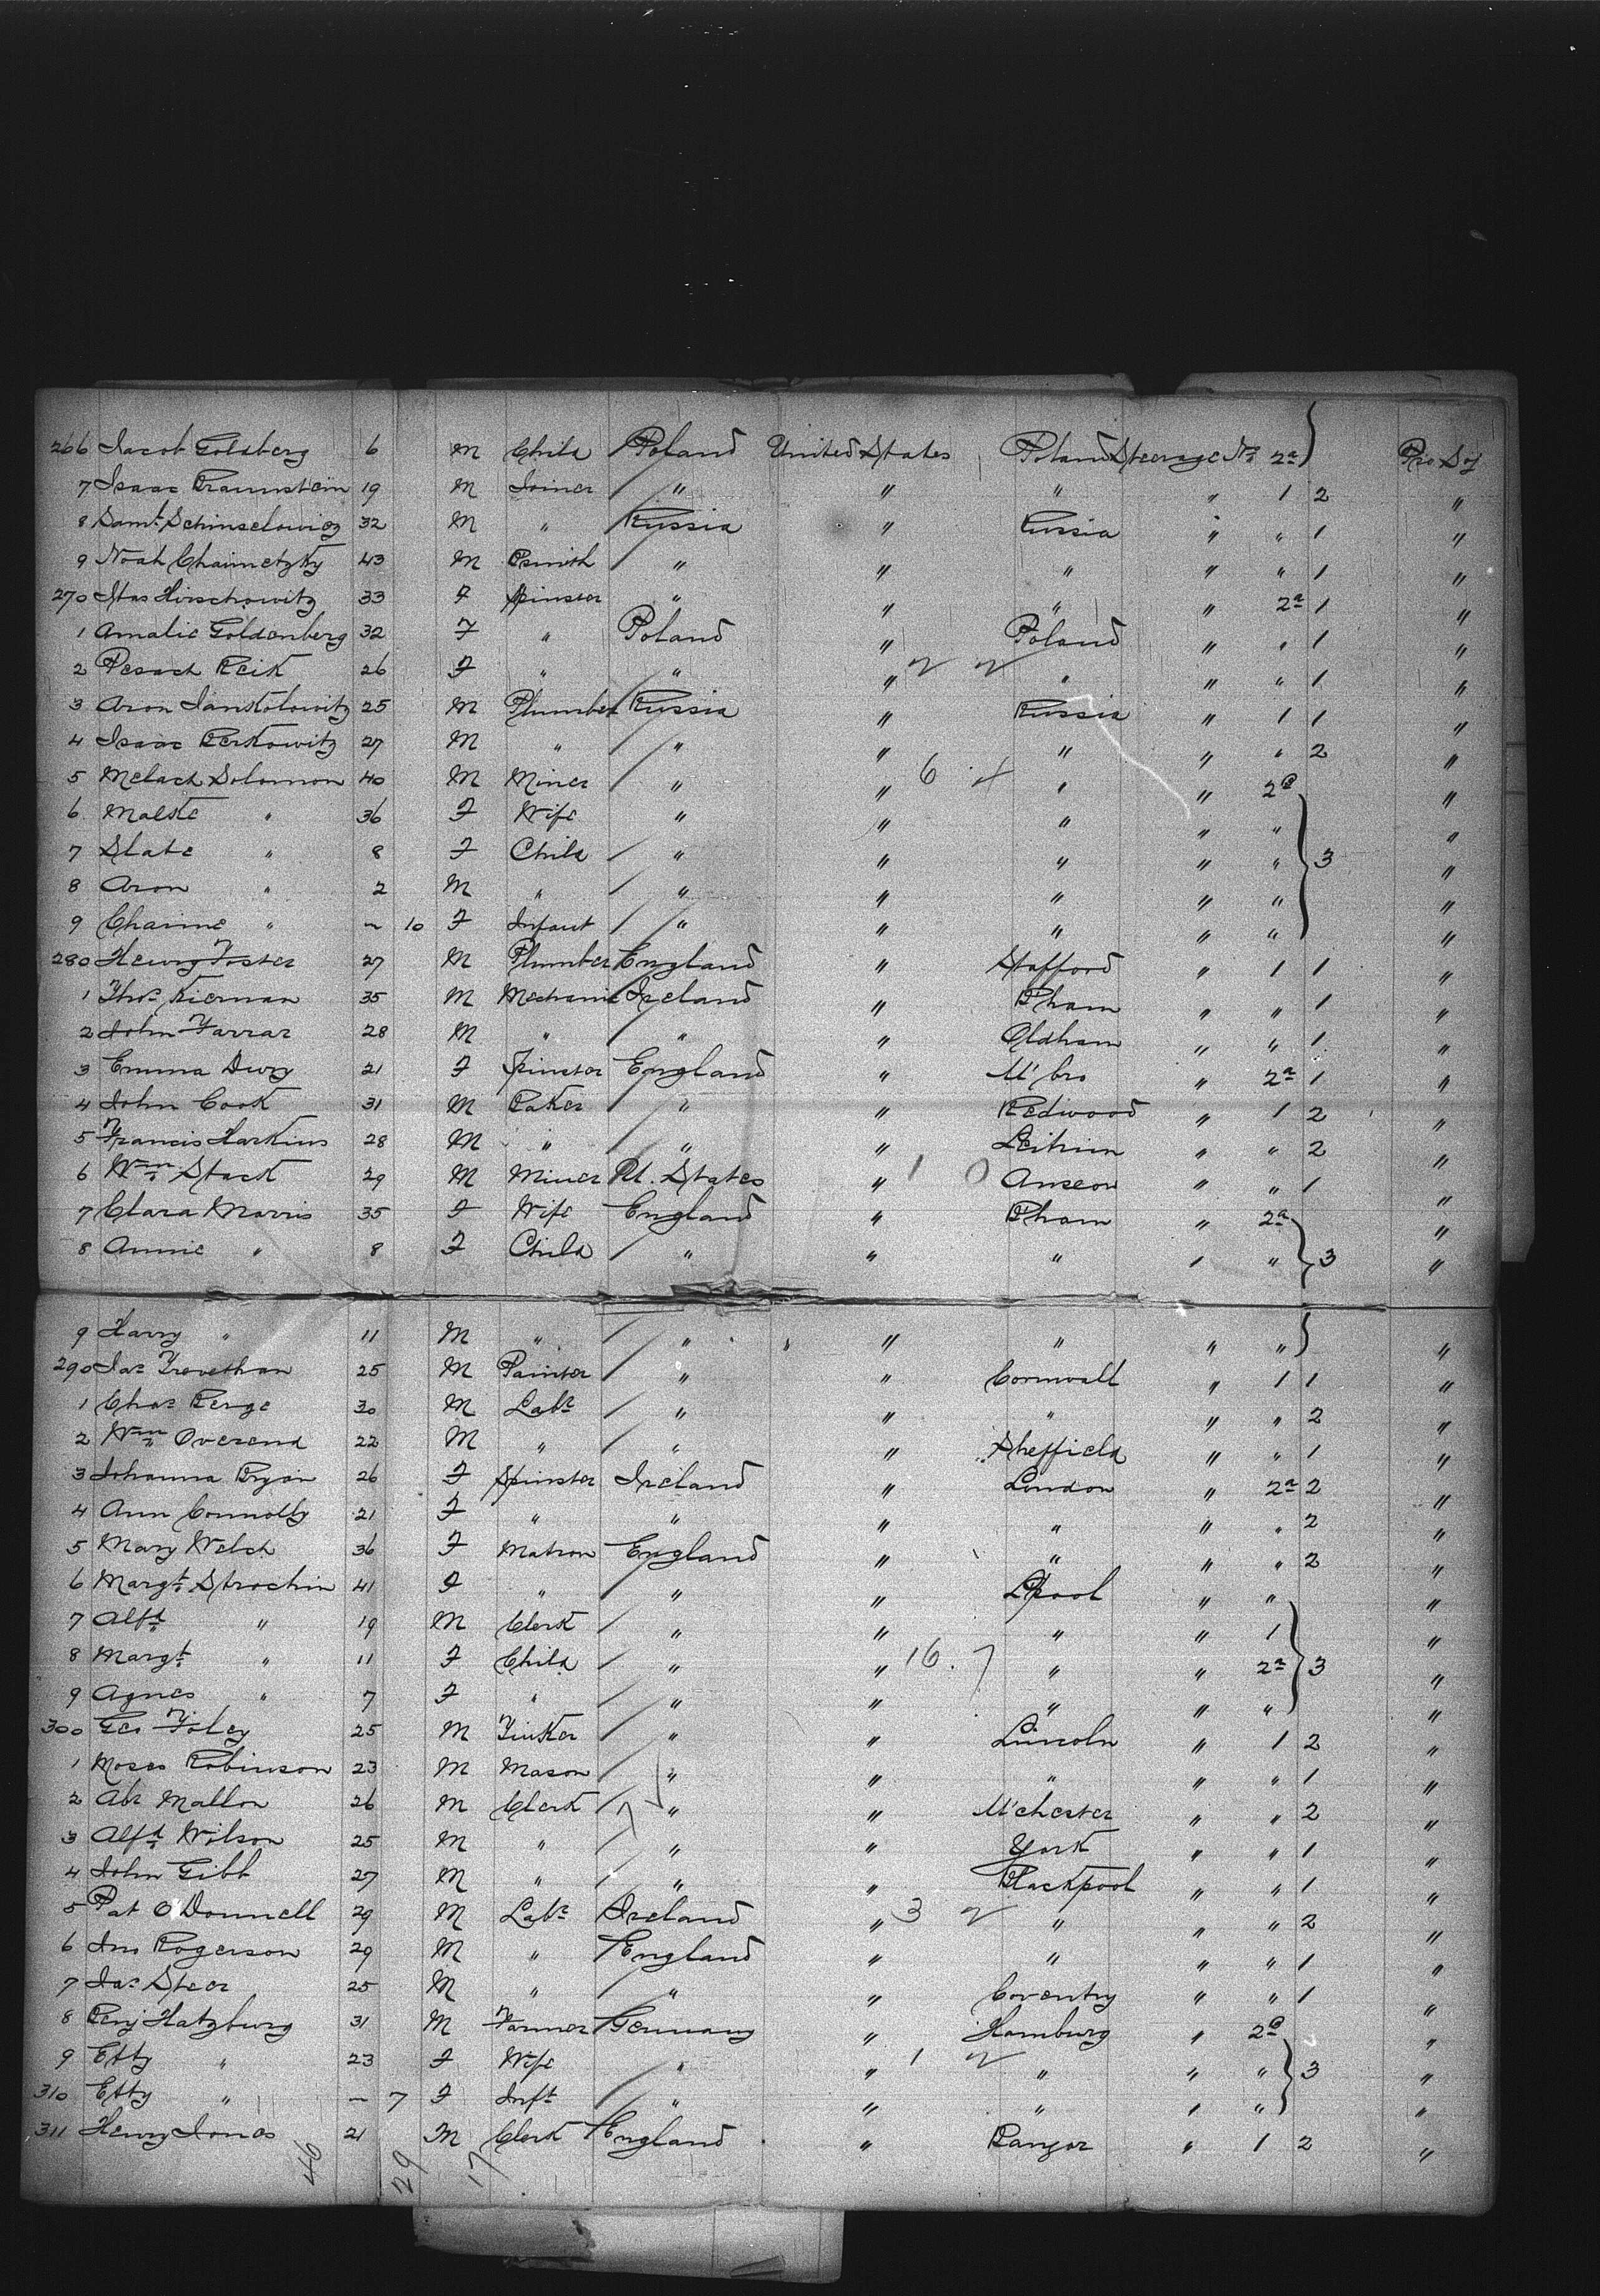 266 Jacob Goldberg 6 M Child Poland United States Poland Steerage No 2a } Pro Soj
7 Isaac Braunstein 19 M Joiner / " " " " 1 2 "
8 Saml Schinselowicz 32 M " Russia " Russia " " 1 "
9 Noah Chaimetzky 43 M Bsmith / " " " " " 1 "
270 Itas Hirschowitz 33 F Spinster " " " " 2a 1 "
1 Amalie Goldenberg 32 F " Poland " Poland " " 1 "
2 Pesach Reik 26 F " / " " 2 2 " " " 1 "
3 Aron Jankolowitz 25 M Plumber Russia " Russia " 1 1 "
4 Isaac Berkowitz 27 M " / " " " " " 2 "
5 Melach Solomon 40 M Miner / " " 6 4 " " 2C "
6 Malke " 36 F Wife " " " " " "
7 Slate " 8 F Child / " " " " " } 3 "
8 Aron " 2 M " / " " " " " "
9 Chaime " ~ 10 F Infant / " " " " " "
280 Henry Foster 27 M Plumber England " Stafford " 1 1 "
1 Thos Kiernan 35 M Mechanic Ireland " B'ham " " 1 "
2 John Farrar 28 M " / " " Oldham " " 1 "
3 Emma Dury 21 F Spinster England " M'bro " 2a 1 "
4 John Cook 31 M Baker / " " Redwood " 1 2 "
5 Francis Harkins 28 M " / " " Leitrim " " 2 "
6 Wm Stack 29 M Miner U. States " 1 0 Anseon " " 1 "
7 Clara Morris 35 F Wife England " B'ham " 2a "
8 Annie " 8 F Child / " " " " " } 3 "
9 Harry " 11 M " / " " " " " } "
290 Jas Trevethan 25 M Painter / " " Cornwall " 1 1 "
1 Chas Berge 30 M Labr / " " " " " 2 "
2 Wm Overend 22 M " / " " Sheffield " " 1 "
3 Johanna Bryan 26 F Spinster Ireland " London " 2a 2 "
4 Ann Connolly 21 F " " " " " " 2 "
5 Mary Welch 36 F Matron England " " " " 2 "
6 Margt Strachin 41 F " / " " L'pool " " "
7 Alfd " 19 M Clerk / " " " " 1 "
8 Margt " 11 F Child / " " 16. 7 " " 2a } 3 "
9 Agnes " 7 F " / " " " " " "
300 Geo Foley 25 M Tinker / " " Lincoln " 1 2 "
1 Moses Robinson 23 M Mason / " " " " " 1 "
2 Abr Mallon 26 M Clerk / " " M'chester " " 2 "
3 Alfd Wilson 25 M " / " " York " " 1 "
4 John Gibb 27 M " / " " Blackpool " " 1 "
5 Pat O'Donnell 29 M Labr Ireland " 3 2 " " " 2 "
6 Jno Rogerson 29 M " England " " " " 1 "
7 Jas Steer 25 M " / " " Coventry " " 1 "
8 Benj Hatzburg 31 M Farmer Germany " Hamburg " 2C "
9 Etty " 23 F Wife " " 1 2 " " " } 3 "
310 Etty " ~ 7 F Inft / " " " " " "
311 Henry Jones 21 M Clerk England " Bangor " 1 2 "
46 29 17